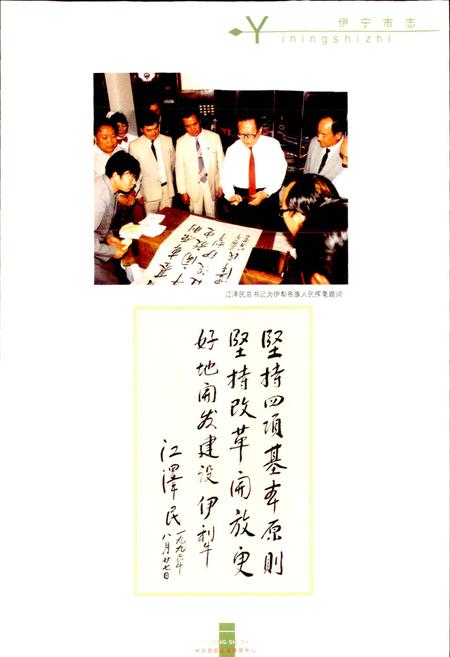 伊宁市志
Yiningshizhi
江泽民总书记为伊犁各族人民挥毫题词
堅持四項基本原則
堅持改革開放更
好地開发建设伊犁
江澤民
一九九〇年
八月廿七日